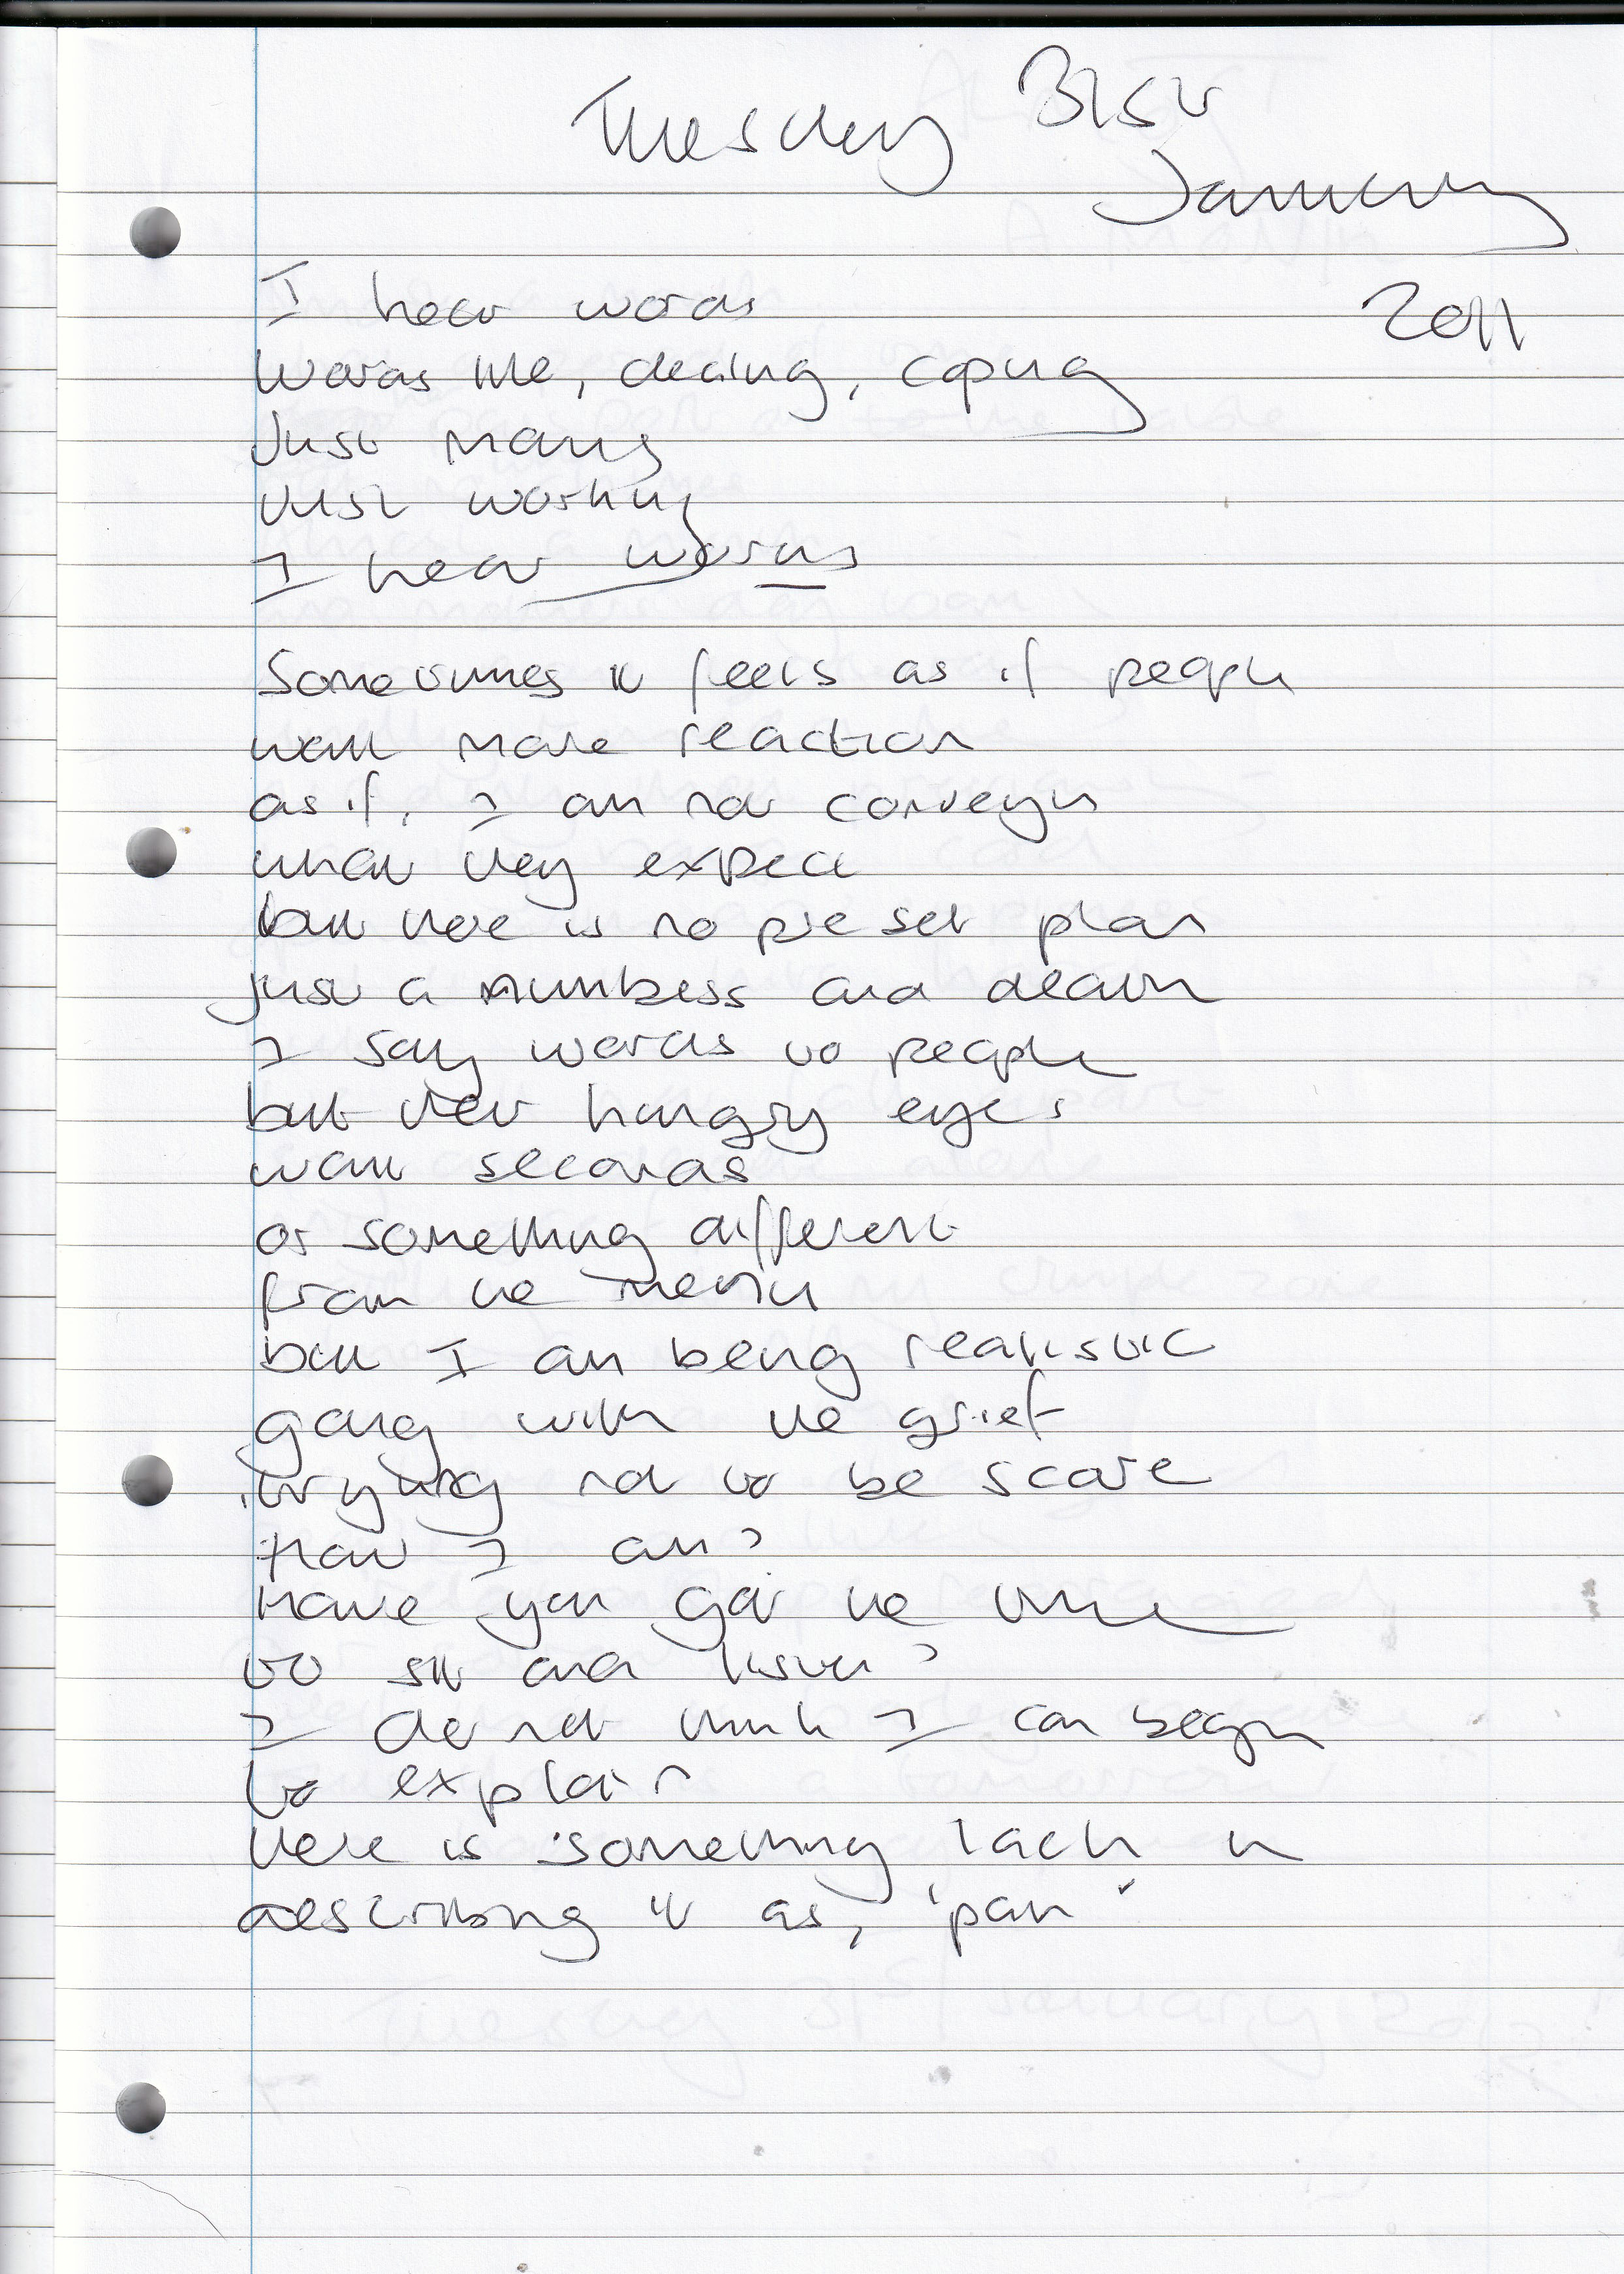 Tuesday 31st
January
2011
I hear words
Words like, dealing, coping
Just
Just working
I hear words
Sometimes it feels as if people
want more reaction
as if, I am not conveyin
what they expect
but there is no pre set plan
just a numbess and death
I say words to people
but their hungry eyes
want seconds
or something different
from the menu
but I am being realistic
going with the grief
trying not to be scare
how I am?
Have you got the time
to sit and listen?
I do not think I can begin
to explain
there is something lack in
describing it as, 'pain'